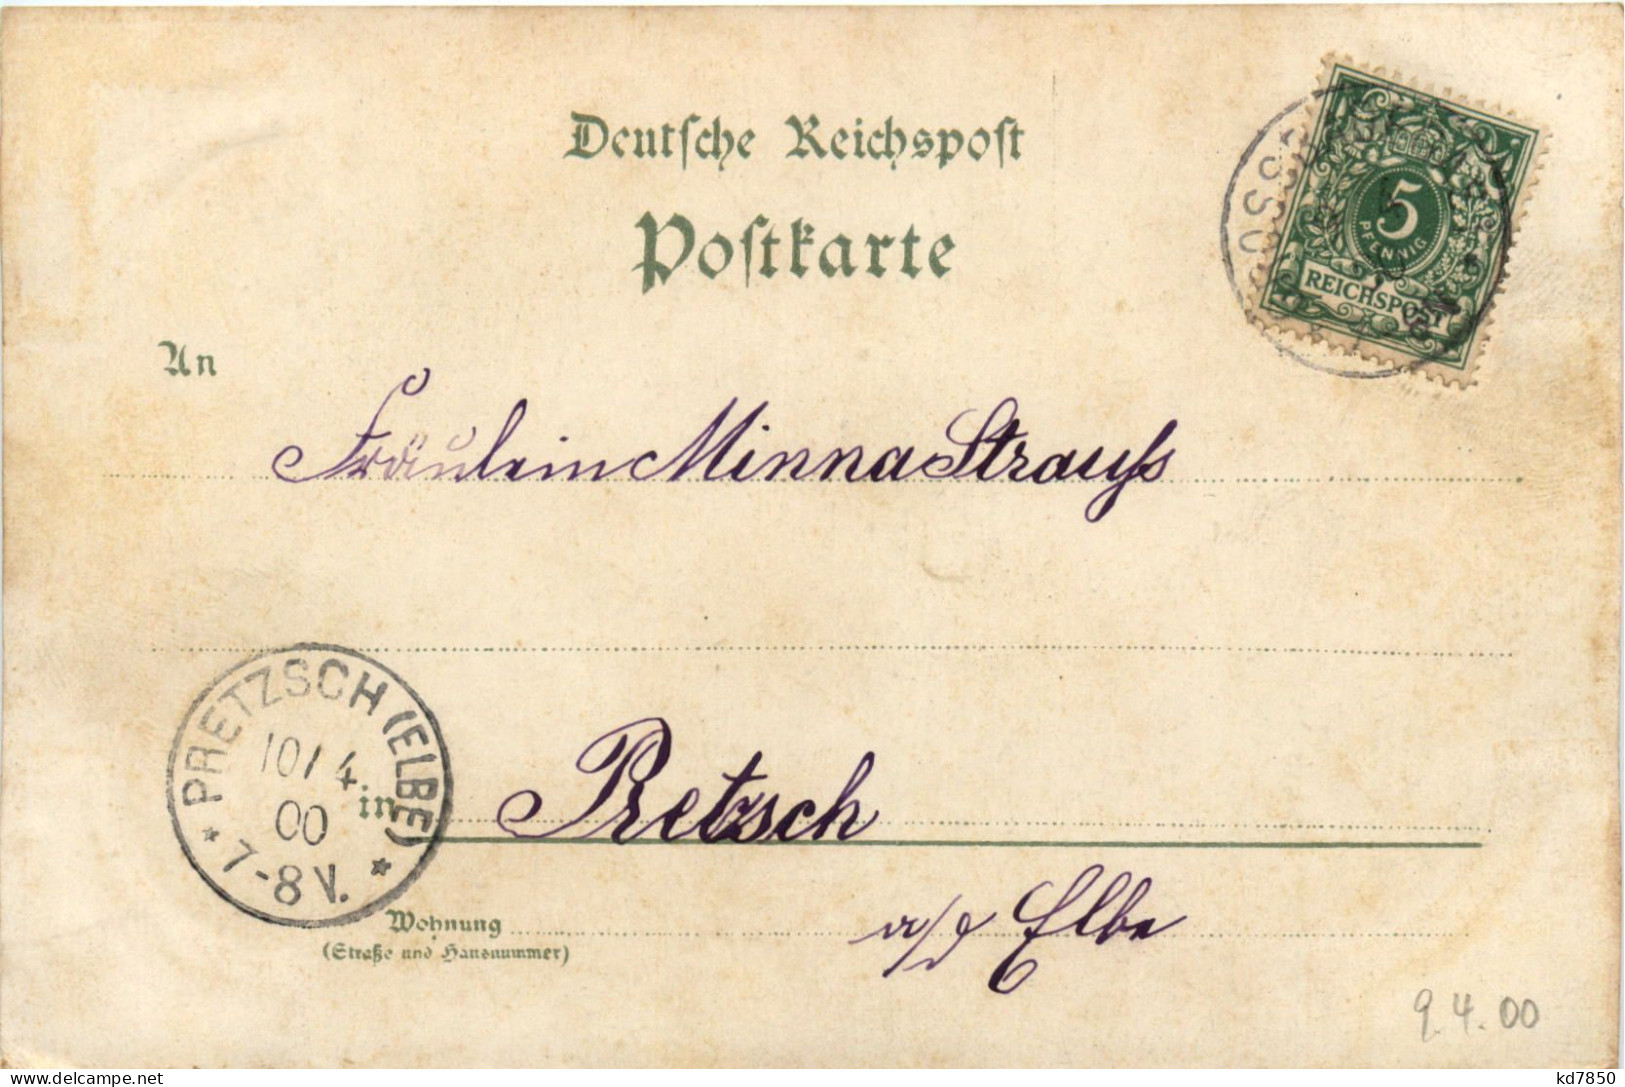 Deutsche Reichspost
Postkarte
5
PFENNIG
REICHSPOST
An
Fräulein Minna Strauss
PRETZSCH (ELBE)
10/4
00
7-8 V.
in
Pretzsch
a/d Elbe
Wohnung
(Straße und Hausnummer)
9.4.00
delcampe.net
kd7850